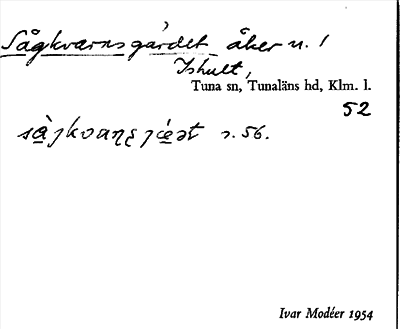 Sågkvarnsgärdet åker n. 1
Ishult,
Tuna sn, Tunaläns hd, Klm. l.
52
s. 56.
Ivar Modéer 1954